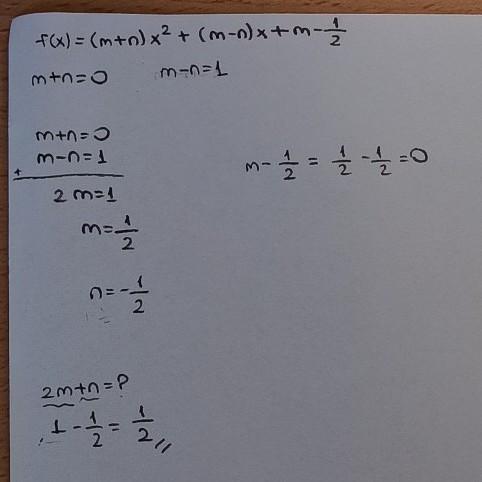 f(x) = (m+n)x² + (m-n)x + m - 1/2
m+n=0 m-n=1
m+n=0
m-n=1
+
2m=1
m - 1/2 = 1/2 - 1/2 = 0
m=1/2
n=-1/2
2m+n=?
1 - 1/2 = 1/2 //